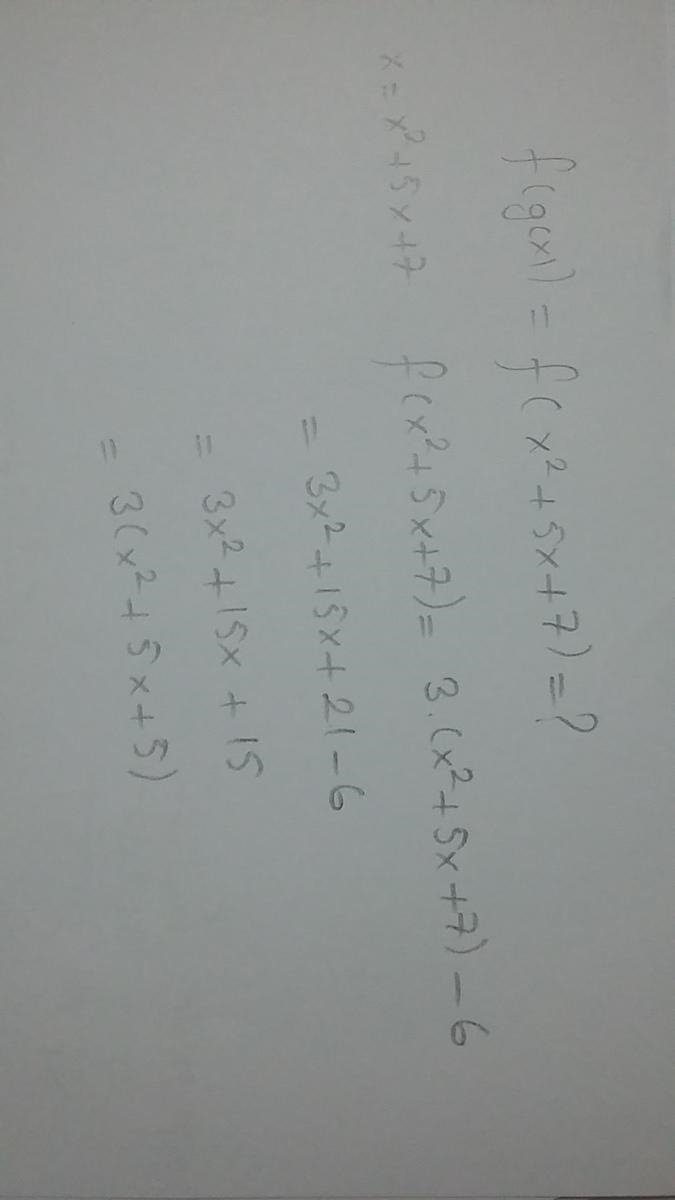 f(g(x)) = f(x²+5x+7)=?
x=x²+5x+7 f(x²+5x+7)= 3.(x²+5x+7)-6
= 3x²+15x+21-6
= 3x²+15x+15
= 3(x²+5x+5)